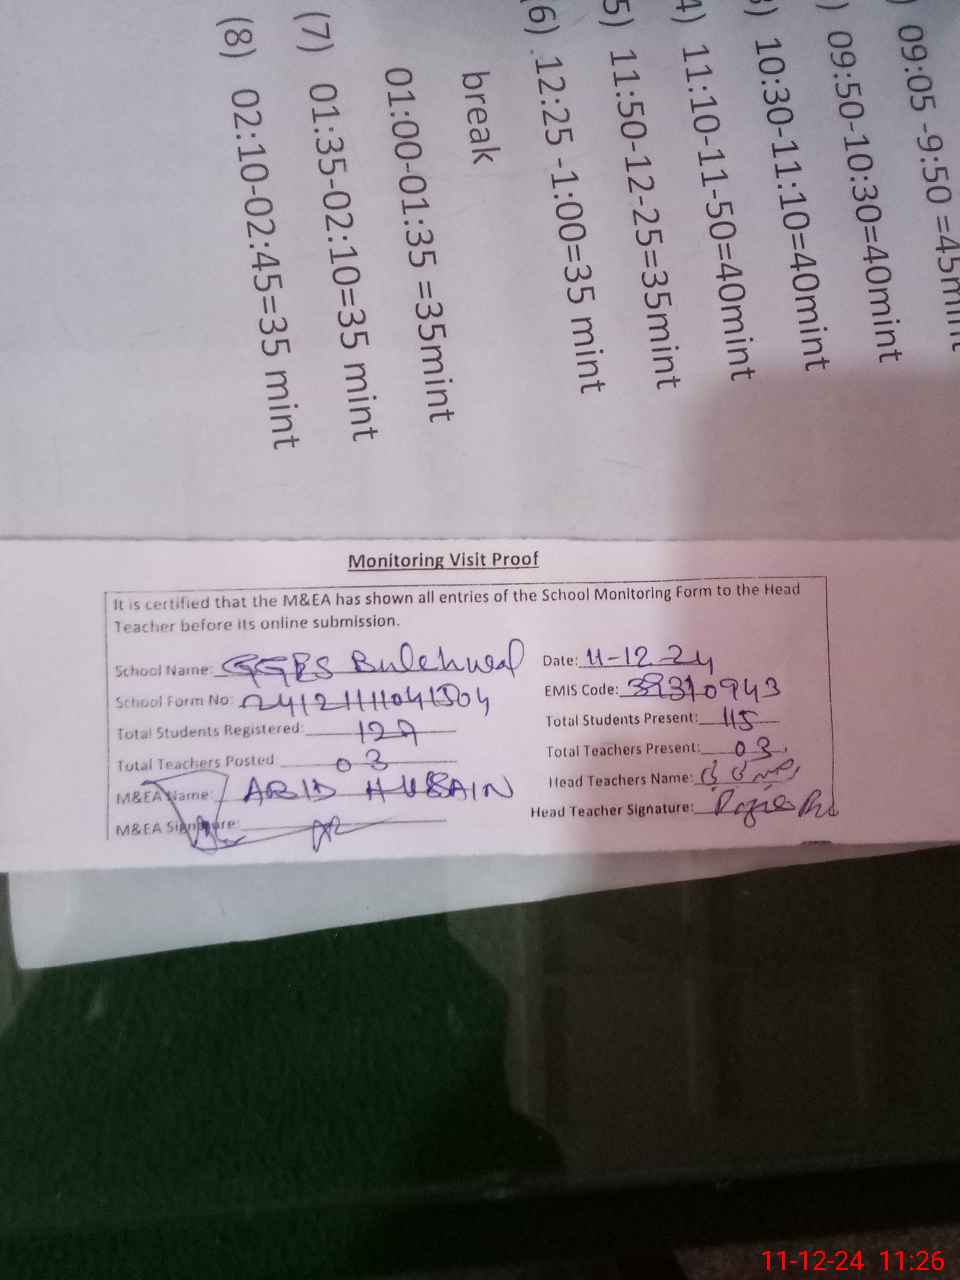 09:05 -9:50 =45mint
) 09:50-10:30=40mint
3) 10:30-11:10=40mint
4) 11:10-11-50=40mint
5) 11:50-12-25=35mint
(6) 12:25 -1:00=35 mint
break
01:00-01:35 =35mint
(7) 01:35-02:10=35 mint
(8) 02:10-02:45=35 mint
Monitoring Visit Proof
It is certified that the M&EA has shown all entries of the School Monitoring Form to the Head
Teacher before its online submission.
School Name: GGPS Date: 11-12-24
School Form No: EMIS Code:
Total Students Registered: Total Students Present: 115
Total Teachers Posted 03 Total Teachers Present: 03
M&EA Name: ABID HUSSAIN Head Teachers Name:
M&EA Signature: Head Teacher Signature:
11-12-24 11:26